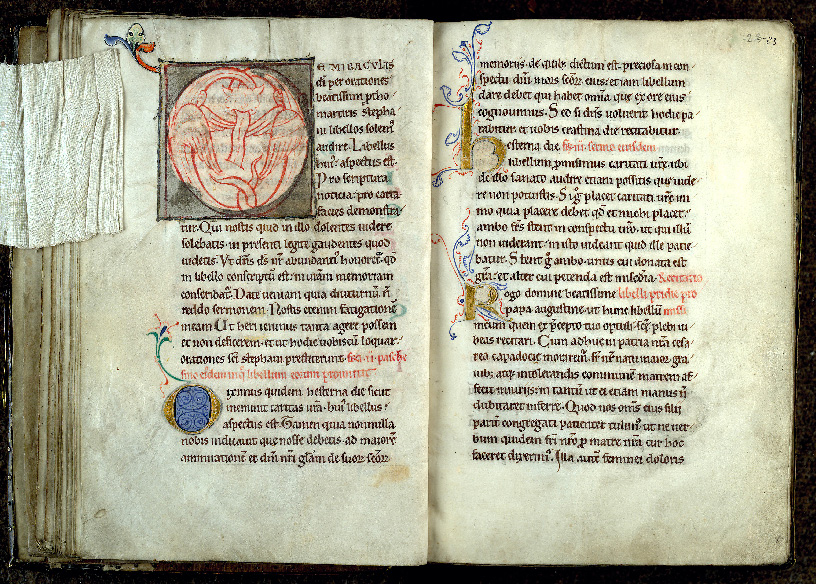 E MIRACULIS
di per orationes
beatissimi ptho
martiris stepha
ni libellos solem'
audire. Labellus
hui' aspectus est.
Pro scriptura
noticia: pro carta
facies demonstra
tur. Qui nostis quid in illo dolentes uidere
solebatis: in presenti legite gaudentes quod
uidetis. Ut dns ds nr abundanti' honoret: qd
in libello conscriptu est: in uram memoriam
conscribat. Date ueniam quia diuturnu n
reddo sermonem. Nostis etenim fatigatione
meam. Ut heri ieiunus tanta agere possem
et non deficerem. et ut hodie uobiscu loquar.
orationes sci stephani prestiterunt.
iximus quidem hesterna die sicut
meminit caritas ura. hui' libellus
aspectus est. Tamen quia nonnulla
nobis indicauit que nosse debetis. ad maiore
ammiratione et dni nri glam de suor scor
23
memoriis. de quib; dictum est. preciosa in con
spectu dni mors scor eius: etiam libellum
dare debet qui habet omia. que ex ore eius
cognouimus. Sed si dns uoluerit hodie pa
rabitur. et uobis crastina die recitabitur.
esterna die
libellum promisimus caritati ure. ubi
de illo sanato audire etiam possitis que uide
re non potuistis. Si g placet caritati ure. im
mo quia placere debet qd et michi placet.
ambo frs stent in conspectu uro. ut qui illu
non uiderant. in isto uideant quid ille patie
batur. Stent g ambo. unus cui donata est
gra: et alter cui petenda est misedia.
ogo domine beatissime libelli pridie pro
papa augustine ut hunc libellu missi
meum quem ex pcepto tuo optuli. sce plebi iu
beas recitari. Cum adhuc in patria nra cesa
rea capadocie moraremur. fr nr natu maior gra
uib; atq; intolerandis communem matrem af
fecit iniuriis: in tantu ut ei etiam manus n
dubitaret inferre. Quod nos oms eius filii
pariter congregati patienter tulim'. ut ne uer
bum quidem fri nro p matre nra cur hoc
faceret dixerim'. Illa aute feminei doloris